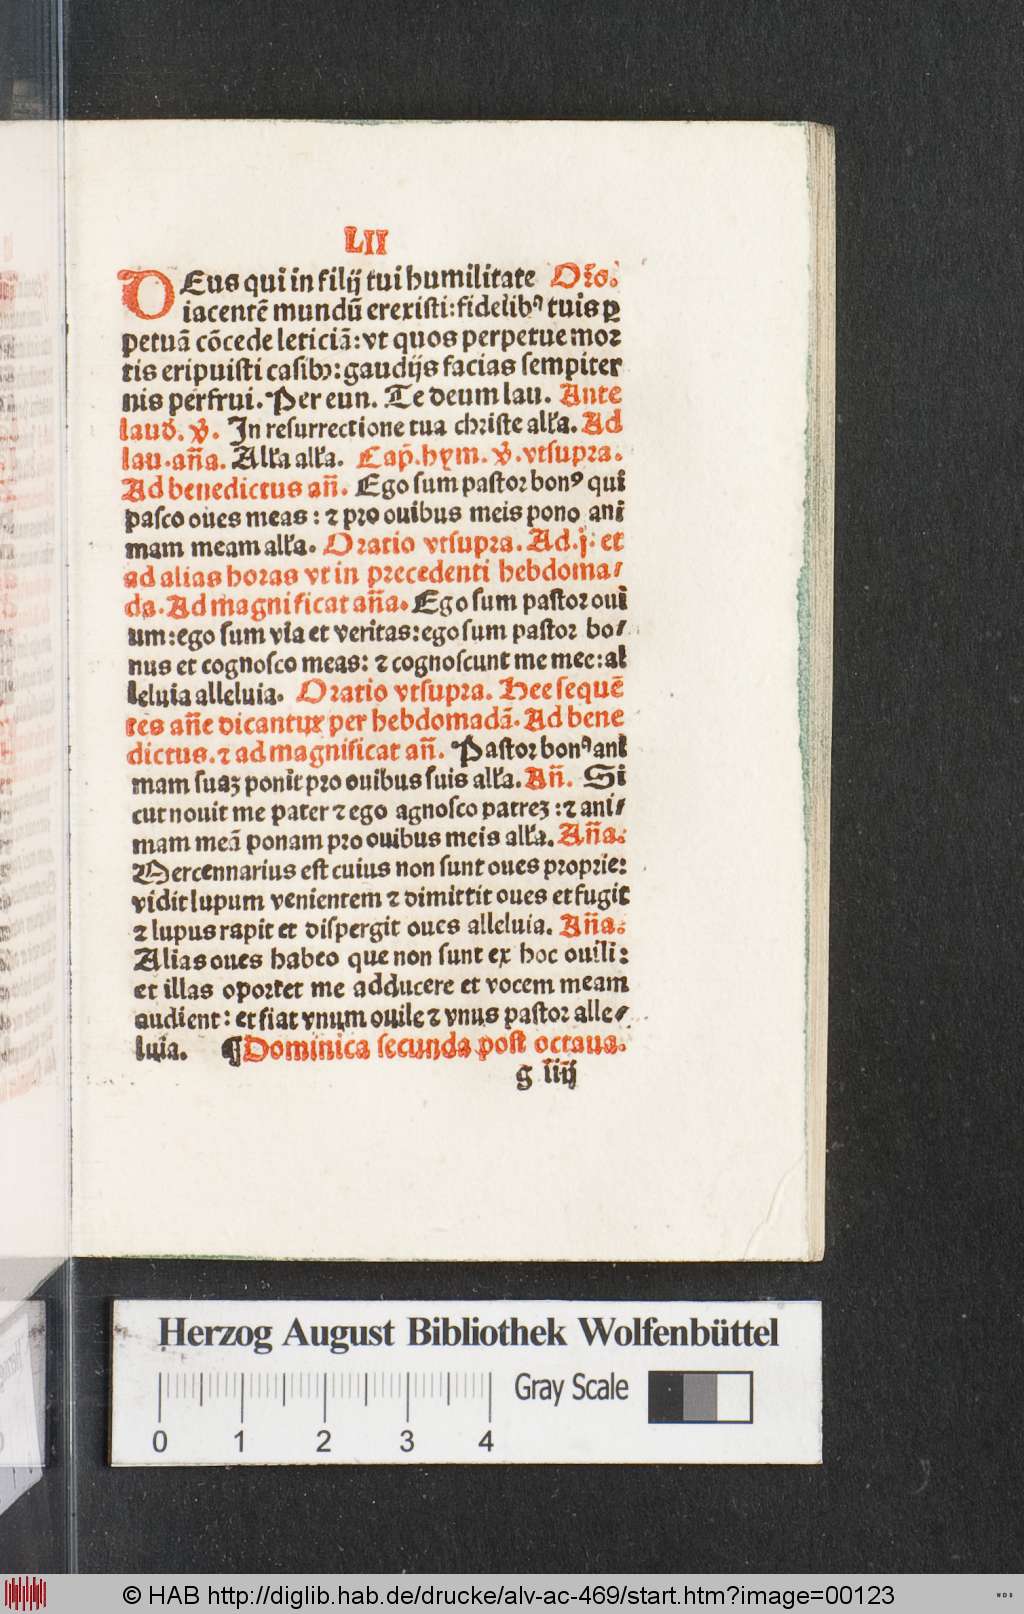 LII
DEus qui in filij tui humilitate Oro.
iacentē mundū erexisti: fidelibꝰ tuis ꝑ
petuā cōcede leticiā: vt quos perpetue mor
tis eripuisti casibꝫ: gaudijs facias sempiter
nis perfrui. Per eun. Te deum lau. Ante
laud. ℣. In resurrectione tua christe alƚa. Ad
lau. aña. Alƚa alƚa. Cap̄. hym. ℣. vtsupra.
Ad benedictus añ. Ego sum pastor bonꝰ qui
pasco oues meas: ⁊ pro ouibus meis pono ani
mam meam alƚa. Oratio vtsupra. Ad .j. et
ad alias horas vt in precedenti hebdoma/
da. Ad magnificat aña. Ego sum pastor oui
um: ego sum via et veritas: ego sum pastor bo/
nus et cognosco meas: ⁊ cognoscunt me mee: al
leluia alleluia. Oratio vtsupra. Hee sequē
tes añe dicantur per hebdomadā. Ad bene
dictus. ⁊ ad magnificat añ. Pastor bonꝰ ani
mam suaꝫ ponit pro ouibus suis alƚa. Añ. Si
cut nouit me pater ⁊ ego agnosco patreꝫ: ⁊ ani/
mam meā ponam pro ouibus meis alƚa. Aña.
Mercennarius est cuius non sunt oues proprie:
vidit lupum venientem ⁊ dimittit oues et fugit
⁊ lupus rapit et dispergit oues alleluia. Aña.
Alias oues habeo que non sunt ex hoc ouili:
et illas oportet me adducere et vocem meam
audient: et fiat vnum ouile ⁊ vnus pastor alle/
luia. ¶Dominica secunda post octaua.
g iiij
Herzog August Bibliothek Wolfenbüttel
Gray Scale
0 1 2 3 4
© HAB http://diglib.hab.de/drucke/alv-ac-469/start.htm?image=00123